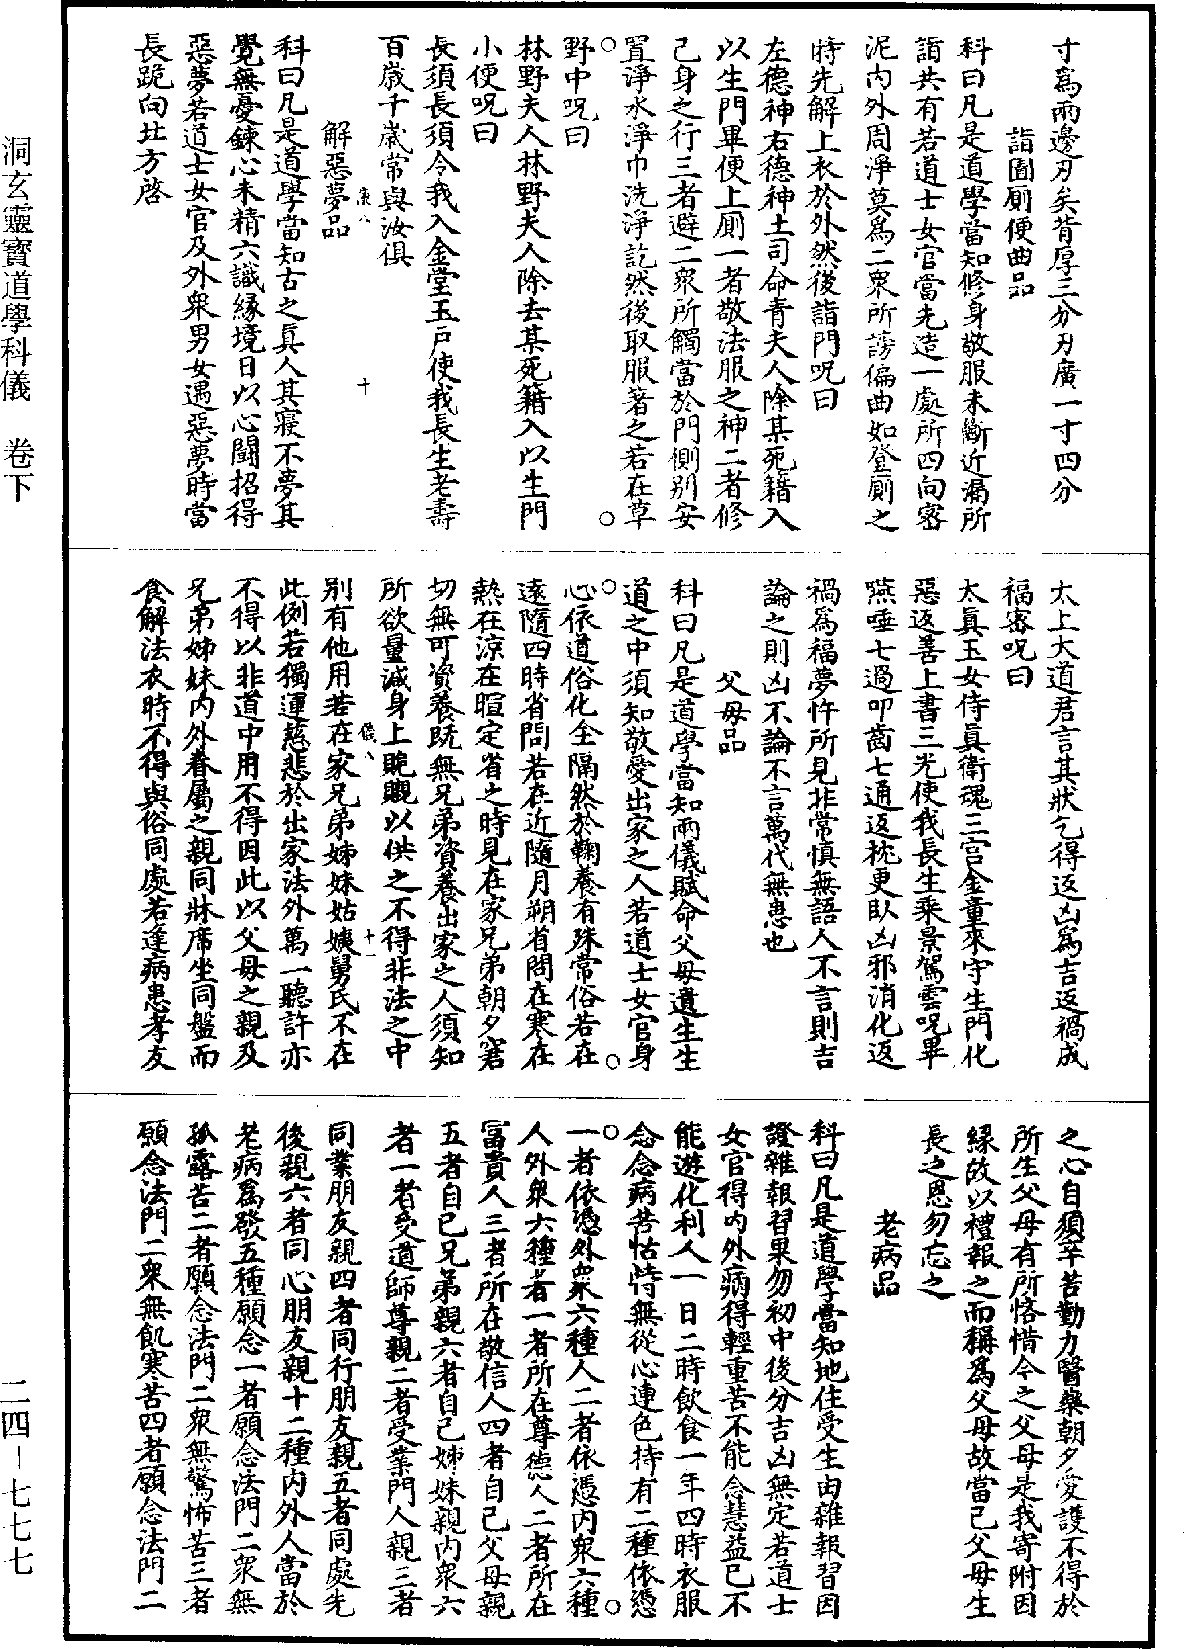 洞玄靈寶道學科儀　卷下
二四－七七七
寸爲兩邊刃矣脊厚三分刃廣一寸四分
詣圊厠便曲品
科曰凡是道學當知修身敬服未斷近漏所
詣共有若道士女官當先造一處所四向密
泥內外周淨莫爲二衆所謗偏曲如登厠之
時先解上衣於外然後詣門呪曰
左德神右德神土司命青夫人除某死籍入
以生門畢便上厠一者敬法服之神二者修
己身之行三者避二衆所觸當於門側別安
置淨水淨巾洗淨訖然後取服著之若在草
野中呪曰
林野夫人林野夫人除去某死籍入以生門
小便呪曰
長須長須令我入金堂玉戶使我長生老壽
百歲千歲常與汝俱
解惡夢品
科曰凡是道學當知古之眞人其寢不夢其
覺無憂鍊心未精六識緣境日以心鬪招得
惡夢若道士女官及外衆男女遇惡夢時當
長跪向北方啓
太上大道君言其狀乞得返凶爲吉返禍成
福密呪曰
太眞玉女侍眞衛魂三宮金童來守生門化
惡返善上書三光使我長生乘景駕雲呪畢
嚥唾七過叩齒七通返枕更臥凶邪消化返
禍爲福夢忤所見非常慎無語人不言則吉
論之則凶不論不言萬代無患也
父母品
科曰凡是道學當知兩儀賦命父母遺生生
道之中須知敬愛出家之人若道士女官身
心依道俗化全隔然於鞠養有殊常俗若在
遠隨四時省問若在近隨月朔省問在寒在
熱在涼在暄定省之時見在家兄弟朝夕窘
切無可資養旣無兄弟資養出家之人須知
所欲量減身上貺䞋以供之不得非法之中
別有他用若在家兄弟姊妹姑姨舅氏不在
此例若獨運慈悲於出家法外萬一聽許亦
不得以非道中用不得因此以父母之親及
兄弟姊妹內外眷屬之親同牀席坐同盤而
食解法衣時不得與俗同處若逢病患孝友
之心自須辛苦勤力醫藥朝夕愛護不得於
所生父母有所悋惜今之父母是我寄附因
緣故以禮報之而稱爲父母故當己父母生
長之恩勿忘之
老病品
科曰凡是道學當知地住受生由雜報習因
證雜報習果勿初中後分吉凶無定若道士
女官得內外病得輕重苦不能念慧益已不
能遊化利人一日二時飲食一年四時衣服
念念病苦怙恃無從心連色持有二種依憑
一者依憑外衆六種人二者依憑內衆六種
人外衆六種者一者所在尊德人二者所在
富貴人三者所在敬信人四者自己父母親
五者自己兄弟親六者自己姊妹親內衆六
者一者受道師尊親二者受業門人親三者
同業朋友親四者同行朋友親五者同處先
後親六者同心朋友親十二種內外人當於
老病爲發五種願念一者願念法門二衆無
孤露苦二者願念法門二衆無驚怖苦三者
願念法門二衆無飢寒苦四者願念法門二